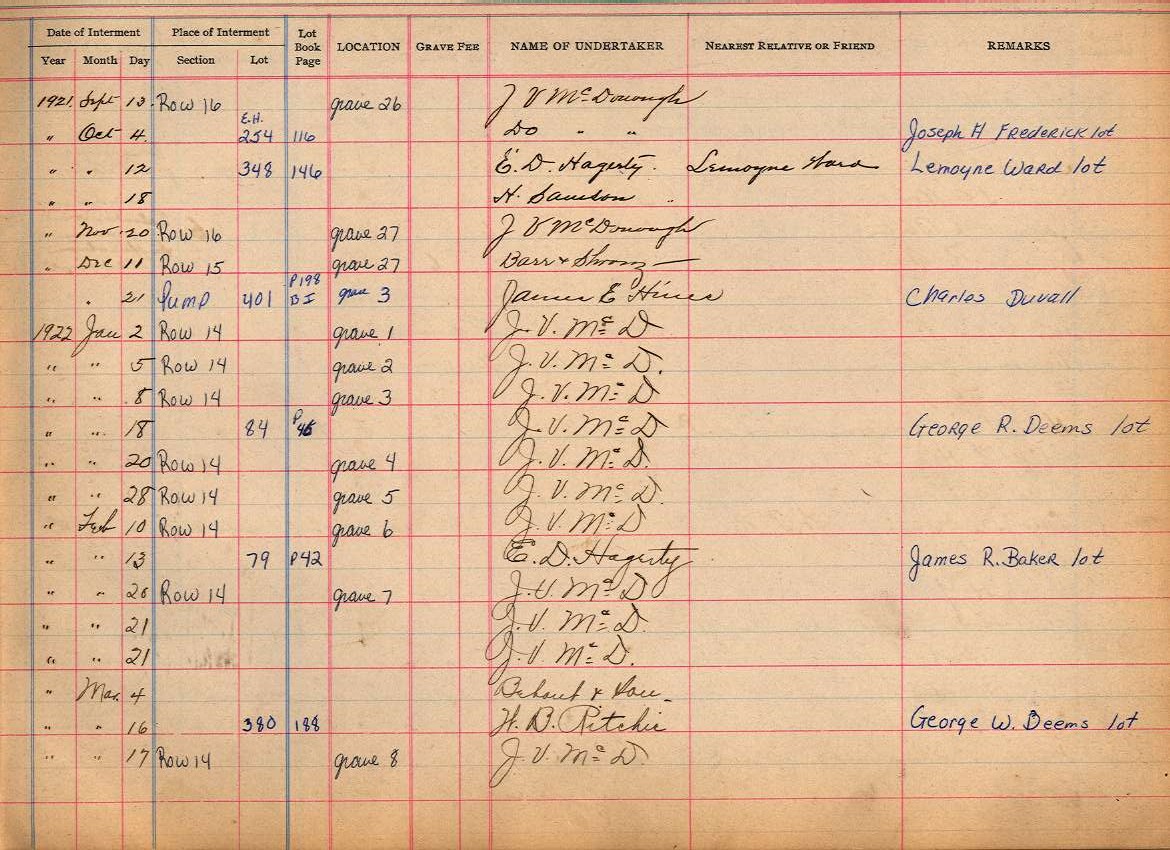 Date of Interment Place of Interment Lot Book Page LOCATION GRAVE FEE NAME OF UNDERTAKER NEAREST RELATIVE OR FRIEND REMARKS
Year Month Day Section Lot
1921 Sept 13 Row 16 grave 26 J V McDonough
" Oct 4 E.H. 254 116 Do " " Joseph H FREDERICK lot
" " 12 348 146 E. D. Hagerty. Lemoyne Ward Lemoyne WARD lot
" " 18 H. Samson
" Nov 20 Row 16 grave 27 J V McDonough
" Dec 11 Row 15 grave 27 Barr &
" 21 Pump 401 P198 B I grave 3 James E Hines Charles Duvall
1922 Jan 2 Row 14 grave 1 J. V. Mc D
" " 5 Row 14 grave 2 J. V. Mc D.
" " 8 Row 14 grave 3 J. V. Mc D
" " 18 84 P 45 J. V. Mc D George R. Deems lot
" " 20 Row 14 grave 4 J. V. Mc D.
" " 28 Row 14 grave 5 J. V. Mc D.
" Feb 10 Row 14 grave 6 J. V. Mc D
" " 13 79 P42 E. D. Hagerty James R. Baker lot
" " 20 Row 14 grave 7 J. V. Mc D
" " 21 J. V. Mc D.
" " 21 J. V. Mc D.
" Mar. 4 & Son
" " 16 380 188 H. B. Ritchie George W. Beems lot
" " 17 Row 14 grave 8 J. V. Mc D.